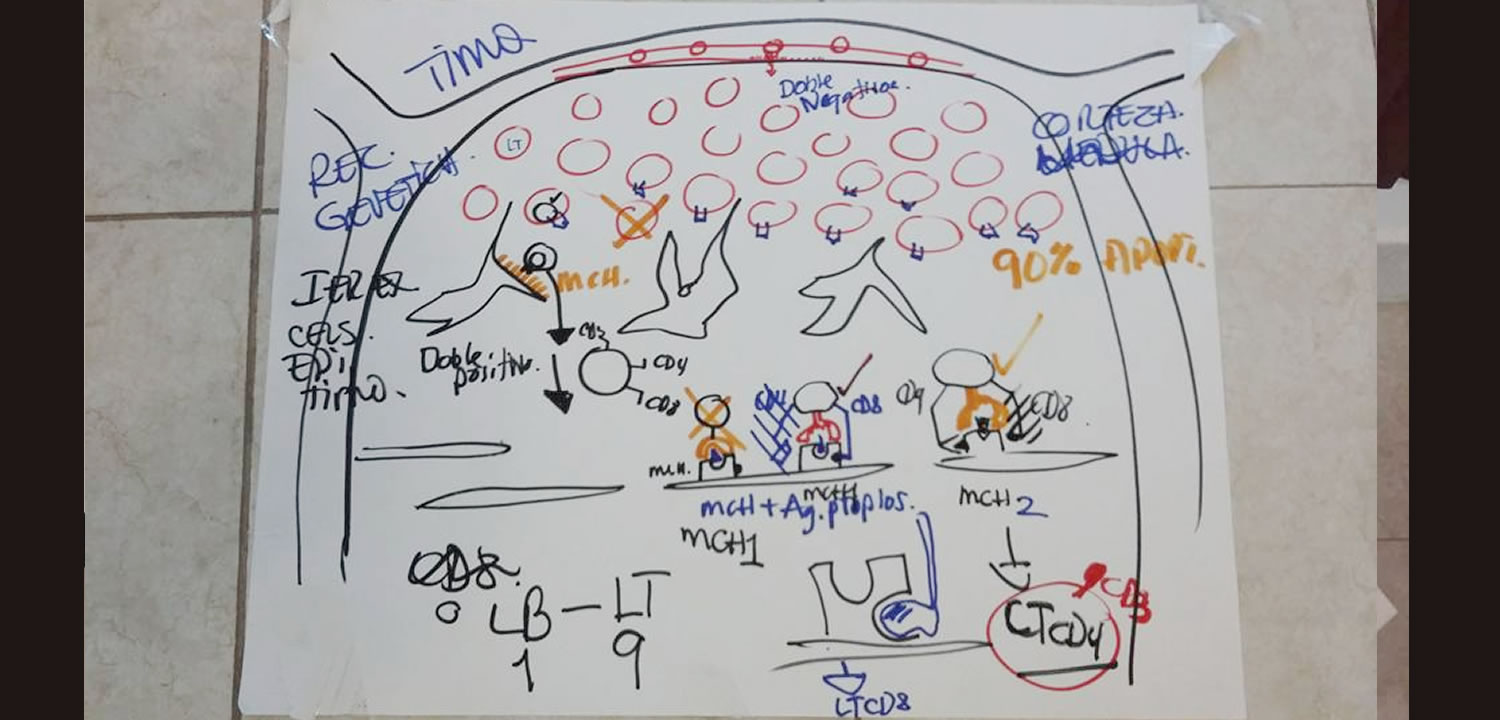 Timo
Doble
Negativos.
CORTEZA.
MEDULA.
LT
REC.
GENETICA.
90% APOPT.
MCH.
CELS.
EPI
timo.
Doble
positivo.
CD3
CD4
CD8
CD4
CD8
CD4
CD8
MCH.
MCH
MCH + Ag. propios.
MCH1
MCH 2
CD8
LB - LT
1 9
LTCD8
LTCD4
CD3